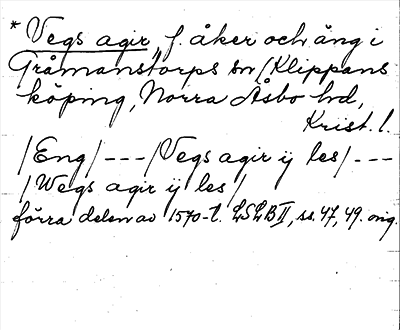 * Vegs agir, f. åker och äng i
Gråmanstorps sn /Klippans
köping, Norra Åsbo hd,
Krist. l.
/Eng/ --- /Vegs agir ij les/ ---
/Wegs agir ij les/
förra delen av 1570-t. LSLB II, ss. 47, 49. orig.